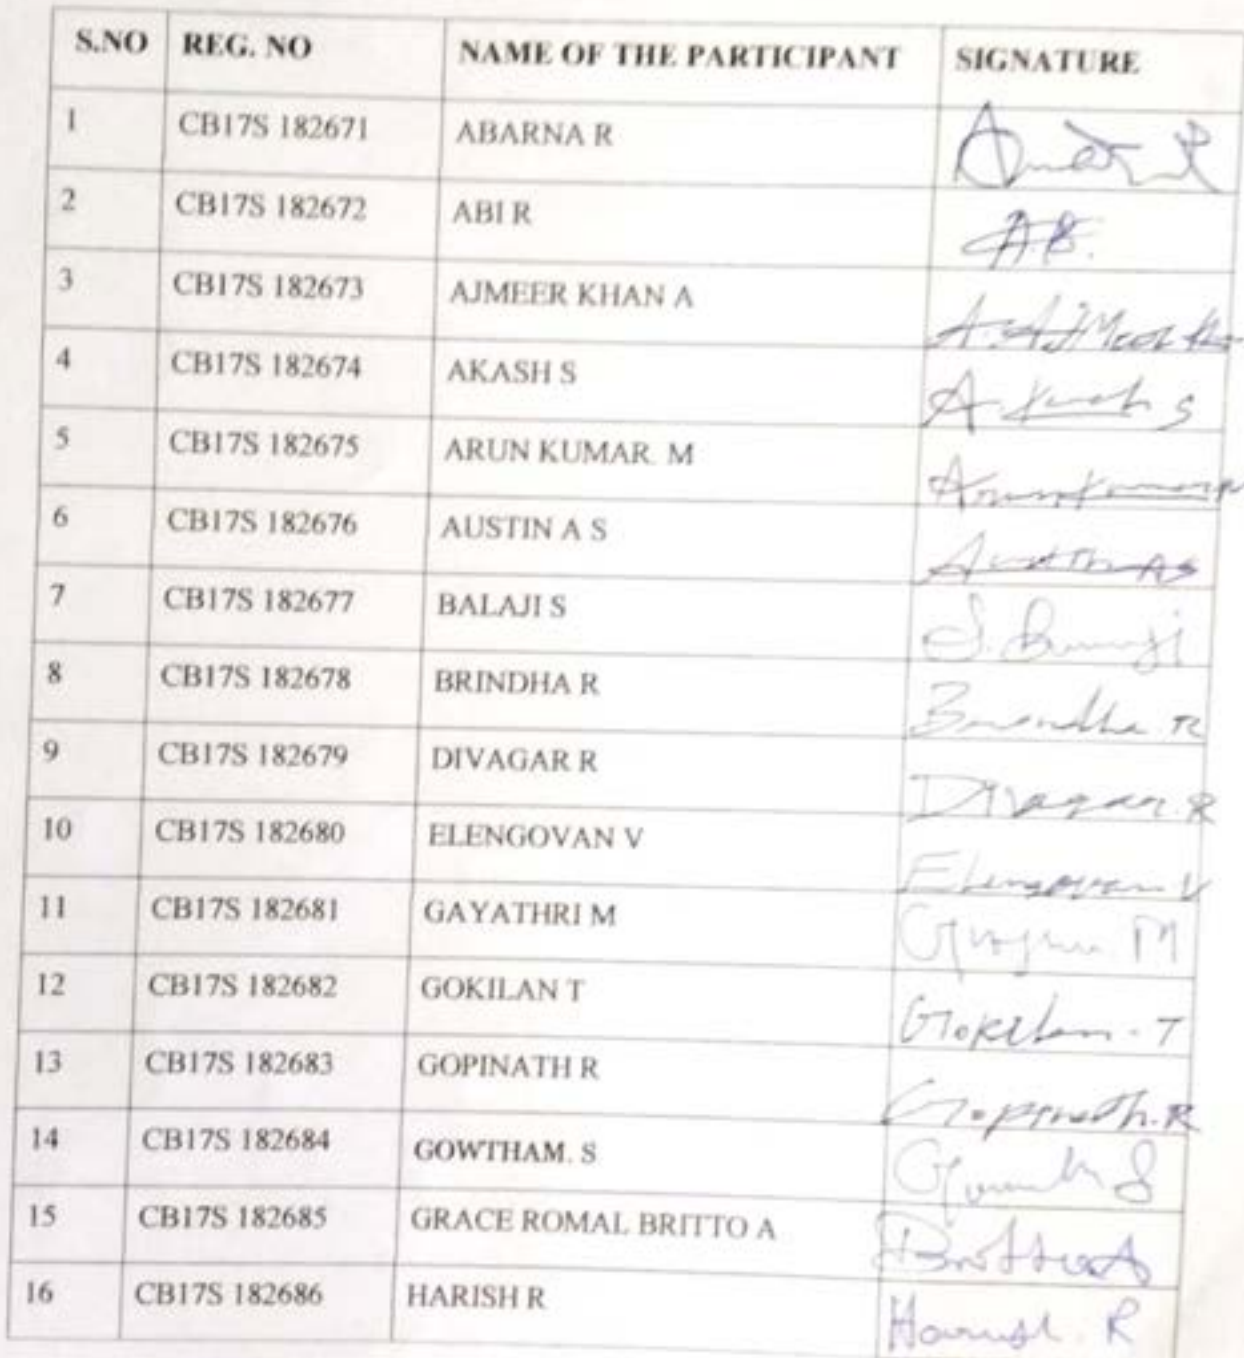 S.NO REG. NO NAME OF THE PARTICIPANT SIGNATURE
1 CB17S 182671 ABARNA R
2 CB17S 182672 ABI R A.B.
3 CB17S 182673 AJMEER KHAN A
4 CB17S 182674 AKASH S
5 CB17S 182675 ARUN KUMAR. M
6 CB17S 182676 AUSTIN A S
7 CB17S 182677 BALAJI S
8 CB17S 182678 BRINDHA R
9 CB17S 182679 DIVAGAR R Divagar. R
10 CB17S 182680 ELENGOVAN V Elengovan V
11 CB17S 182681 GAYATHRI M
12 CB17S 182682 GOKILAN T Gokilan - T
13 CB17S 182683 GOPINATH R Gopinath. R
14 CB17S 182684 GOWTHAM. S
15 CB17S 182685 GRACE ROMAL BRITTO A
16 CB17S 182686 HARISH R Harish. R